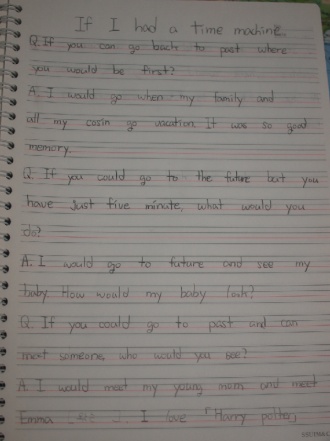 If I had a time machine.
Q. If you can go back to past where
you would be first?
A. I would go when my family and
all my cosin go vacation. It was so good
memory.
Q. If you could go to the future but you
have just five minate, what would you
do?
A. I would go to future and see my
baby. How would my baby look?
Q. If you coold go to past and can
meat someone, who would you see?
A. I would meet my young mom and meet
Emma I love 「Harry potter」